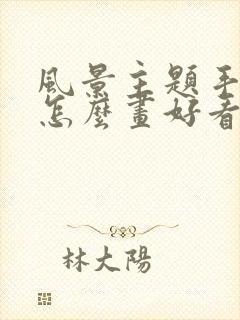 風景主題手
怎麼畫好看
林大陽